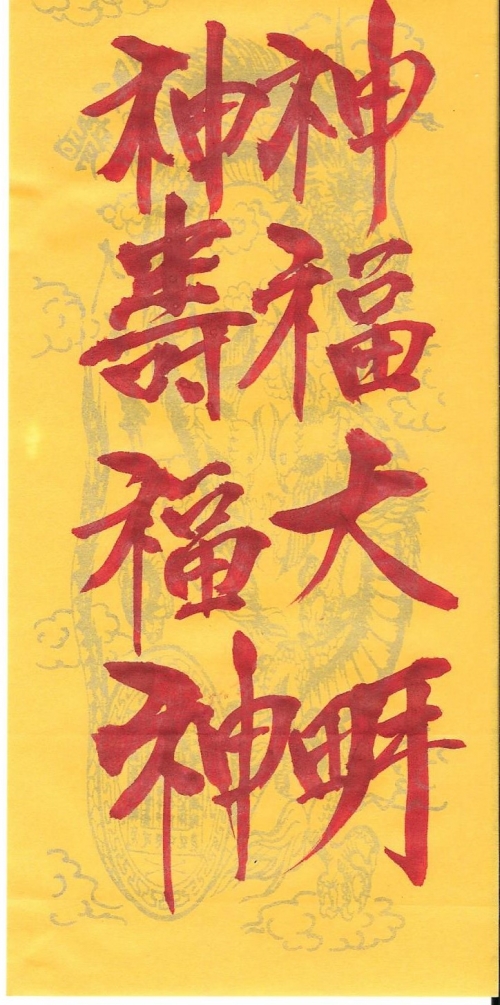 神福大
神壽福神